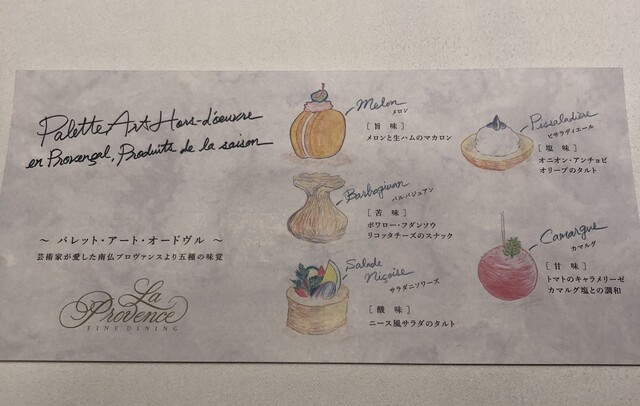 Palette Art Hors-d'œuvre
en Provençal, Produits de la saison
～ パレット・アート・オードヴル ～
芸術家が愛した南仏プロヴァンスより五種の味覚
La Provence
FINE DINING
Melon
メロン
[旨 味]
メロンと生ハムのマカロン
Barbagiuan
バルバジュアン
[苦 味]
ポワロー・フダンソウ
リコッタチーズのスナック
Salade Niçoise
サラダニソワーズ
[酸 味]
ニース風サラダのタルト
Pissaladière
ピサラディエール
[塩 味]
オニオン・アンチョビ
オリーブのタルト
Camargue
カマルグ
[甘 味]
トマトのキャラメリーゼ
カマルグ塩との調和